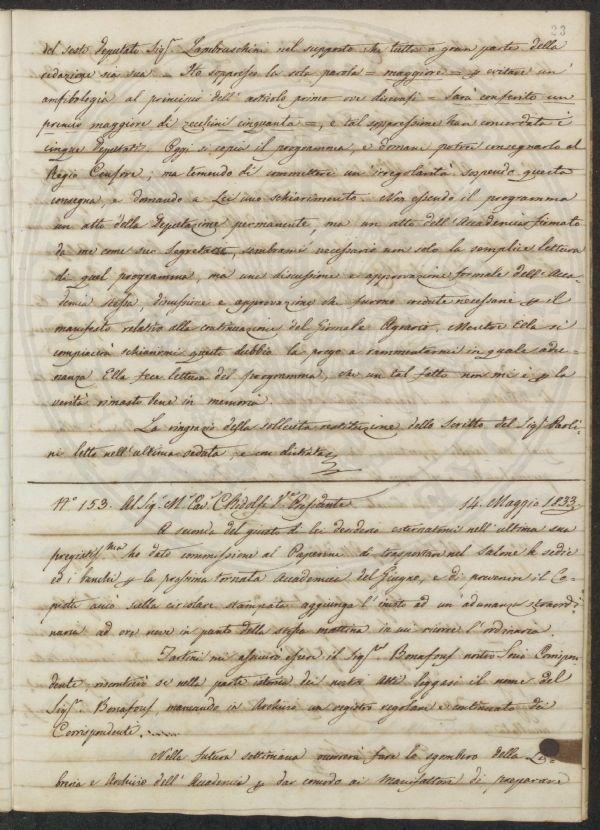 23
del sesto Deputato Sig.r Lambruschini nel supposto che tutta o gran parte della
redazione sia sua = Ho soppresso la sola parola = maggiore = p evitare un'
anfibologia al principio dell'articolo primo ove dicevasi = Sarà conferito un
premio maggiore di zecchini cinquanta =, e tal soppressione han concordata i
cinque Deputati. Oggi si copia il programma, e domane potrei consegnarlo al
Regio Censore; ma temendo di commettere un'irregolarità sospendo questa
consegna, e domando a Lei uno schiarimento. Non essendo il programma
un atto della Deputazione permanente, ma un atto dell'Accademia firmato
da me come suo Segretario, sembrami necessario non solo la semplice lettura
di quel programma, ma una discussione e approvazione formale dell'Acca-
demia stessa, discussione e approvazione che furono credute necessarie p il
manifesto relativo alla continuazione del Giornale Agrario. Mentre Ella si
compiacerà schiarirmi questo dubbio la prego a rammentarmi in quale adu-
nanza Ella fece lettura del programma, che un tal fatto non mi è p la
verità rimasto bene in memoria.
La ringrazio della sollecita restituzione dello Scritto del Sig.r Paoli-
ni letto nell'ultima seduta, e con distinta
N.o 153. Al Sig. M. Cav. C. Ridolfi V. Presidente 14. Maggio 1833
A seconda del giusto di lei desiderio esternatomi nell'ultima sua
pregiatiss.ma ho dato commissione al Paperini di trasportare nel Salone le sedie
ed i banchi p la prossima tornata Accademica del Giugno, e di prevenire il Co-
pista acciò sulla circolare stampata aggiunga l'invito ad un'adunanza straordi
naria ad ore nove in punto della stessa mattina in cui ricorre l'ordinaria.
Tartini mi assicurò essere il Sig.r Bonafous nostro Socio Corrispon-
dente, riscontrerò se nella parte istorica dei nostri Atti leggasi il nome del
Sig.r Bonafous, mancando in Archivio un registro regolare e continuato dei
Corrispondenti.
Nella futura settimana occorrerà fare lo sgombero della Li-
breria e Archivio dell'Accademia p dar comodo ai Manifattori di preparare